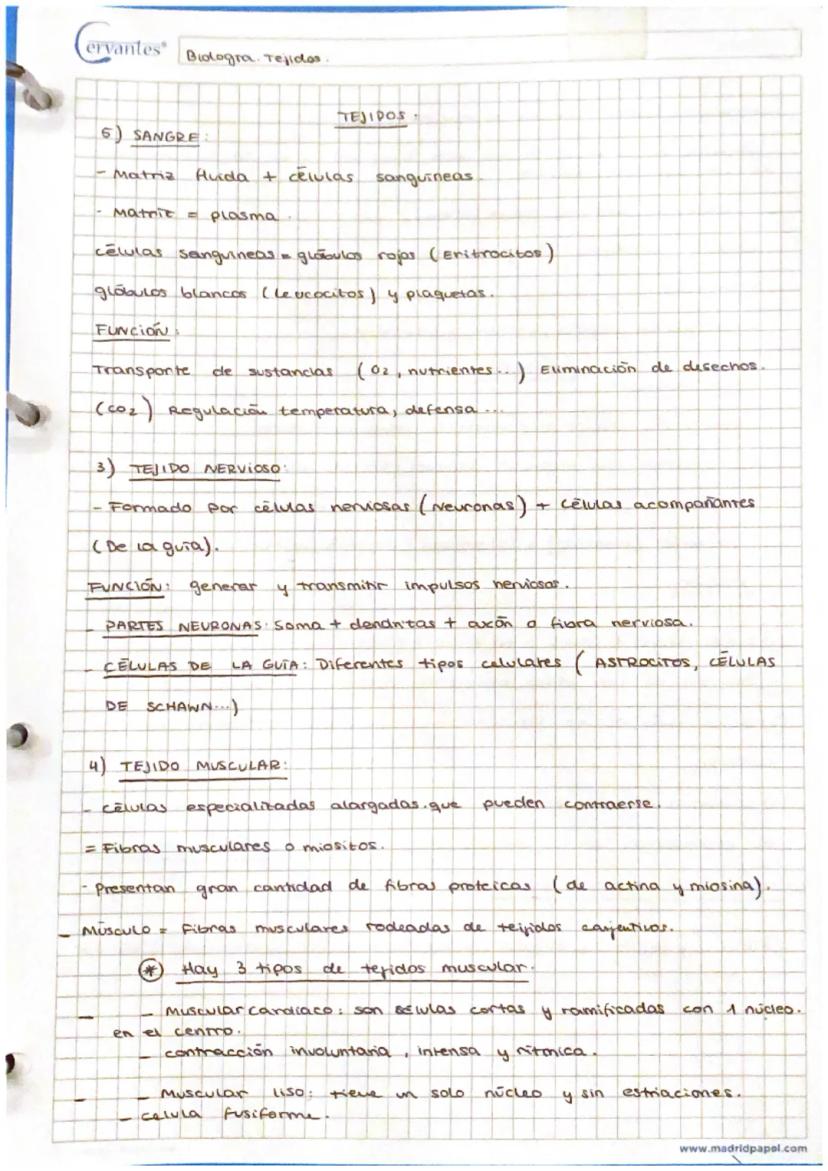 Cervantes®
Biología. Tejidos.
TEJIDOS.
5) SANGRE:
- Matriz fluida + células sanguíneas.
- Matriz = plasma.
células sanguíneas = glóbulos rojos (Eritrocitos)
glóbulos blancos (leucocitos) y plaquetas.
FUNCIÓN:
Transporte de sustancias (O2, nutrientes...) Eliminación de desechos.
(CO2) Regulación temperatura, defensa...
3) TEJIDO NERVIOSO:
- Formado por células nerviosas (Neuronas) + células acompañantes
(De la guía).
FUNCIÓN: generar y transmitir impulsos nerviosos.
- PARTES NEURONAS: Soma + dendritas + axón o fibra nerviosa.
- CÉLULAS DE LA GUÍA: Diferentes tipos celulares (ASTROCITOS, CÉLULAS
DE SCHAWN...)
4) TEJIDO MUSCULAR:
- células especializadas alargadas que pueden contraerse.
= Fibras musculares o miositos.
- Presentan gran cantidad de fibras proteicas (de actina y miosina).
- Músculo = Fibras musculares rodeadas de teijidos conjentivos.
* Hay 3 tipos de tejidos muscular.
- - Muscular cardíaco: son células cortas y ramificadas con 1 núcleo.
en el centro.
- contracción involuntaria, intensa y ritmica.
- - Muscular liso: tieve un solo núcleo y sin estriaciones.
- celula fusiforme.
www.madridpapel.com